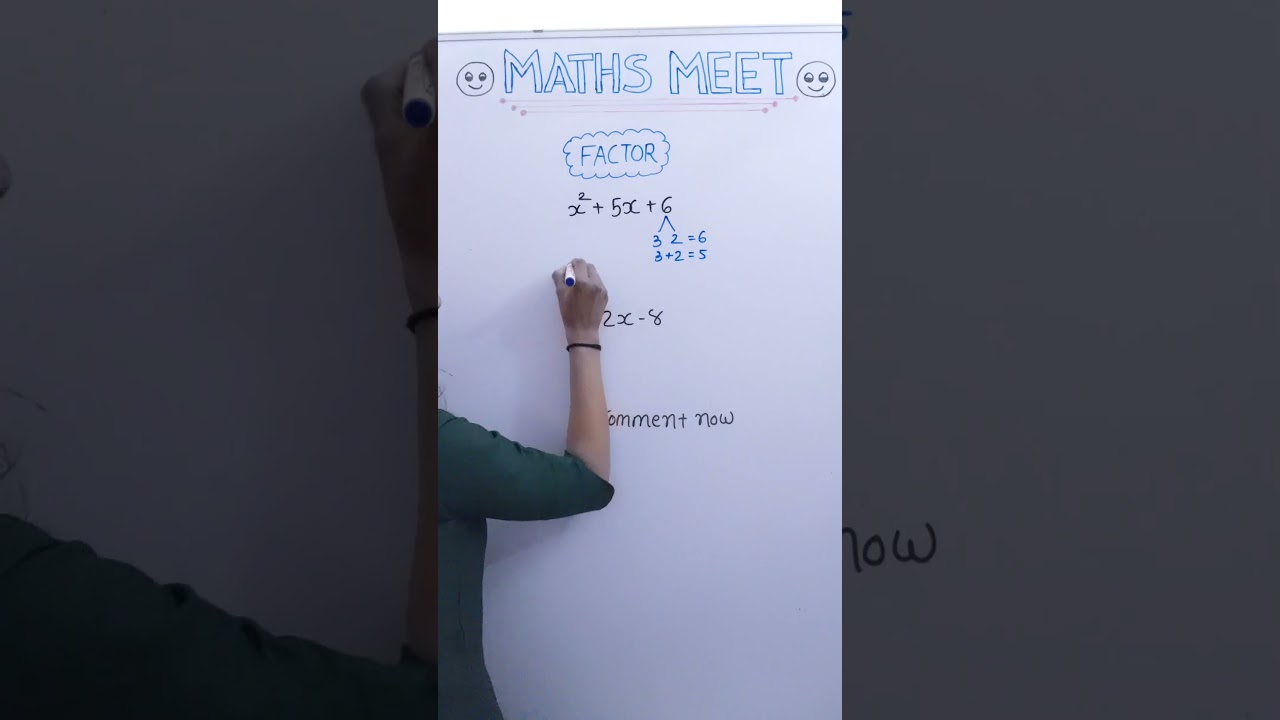 MATHS MEET
FACTOR
x² + 5x + 6
3 2 = 6
3 + 2 = 5
2x - 8
omment now
now